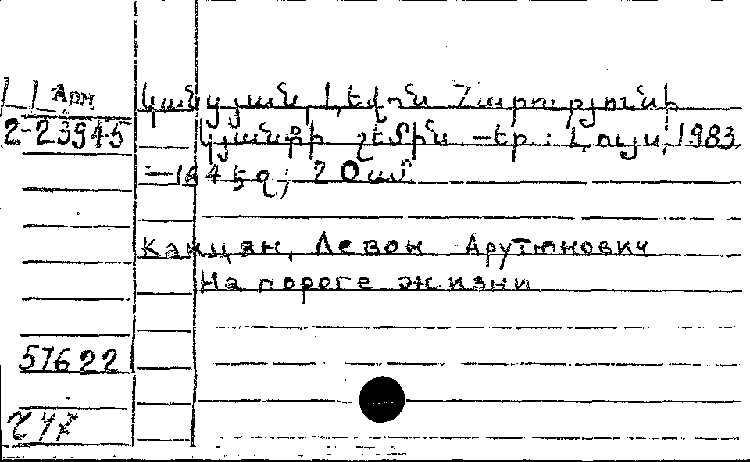 Арм Կանցյան, Լևոն Հարությունի
2-23945 Կյանքի շեմին – Եր: Լույս, 1983
էջ; 20 սմ
Канцян, Левон Арутюнович
На пороге жизни
57622